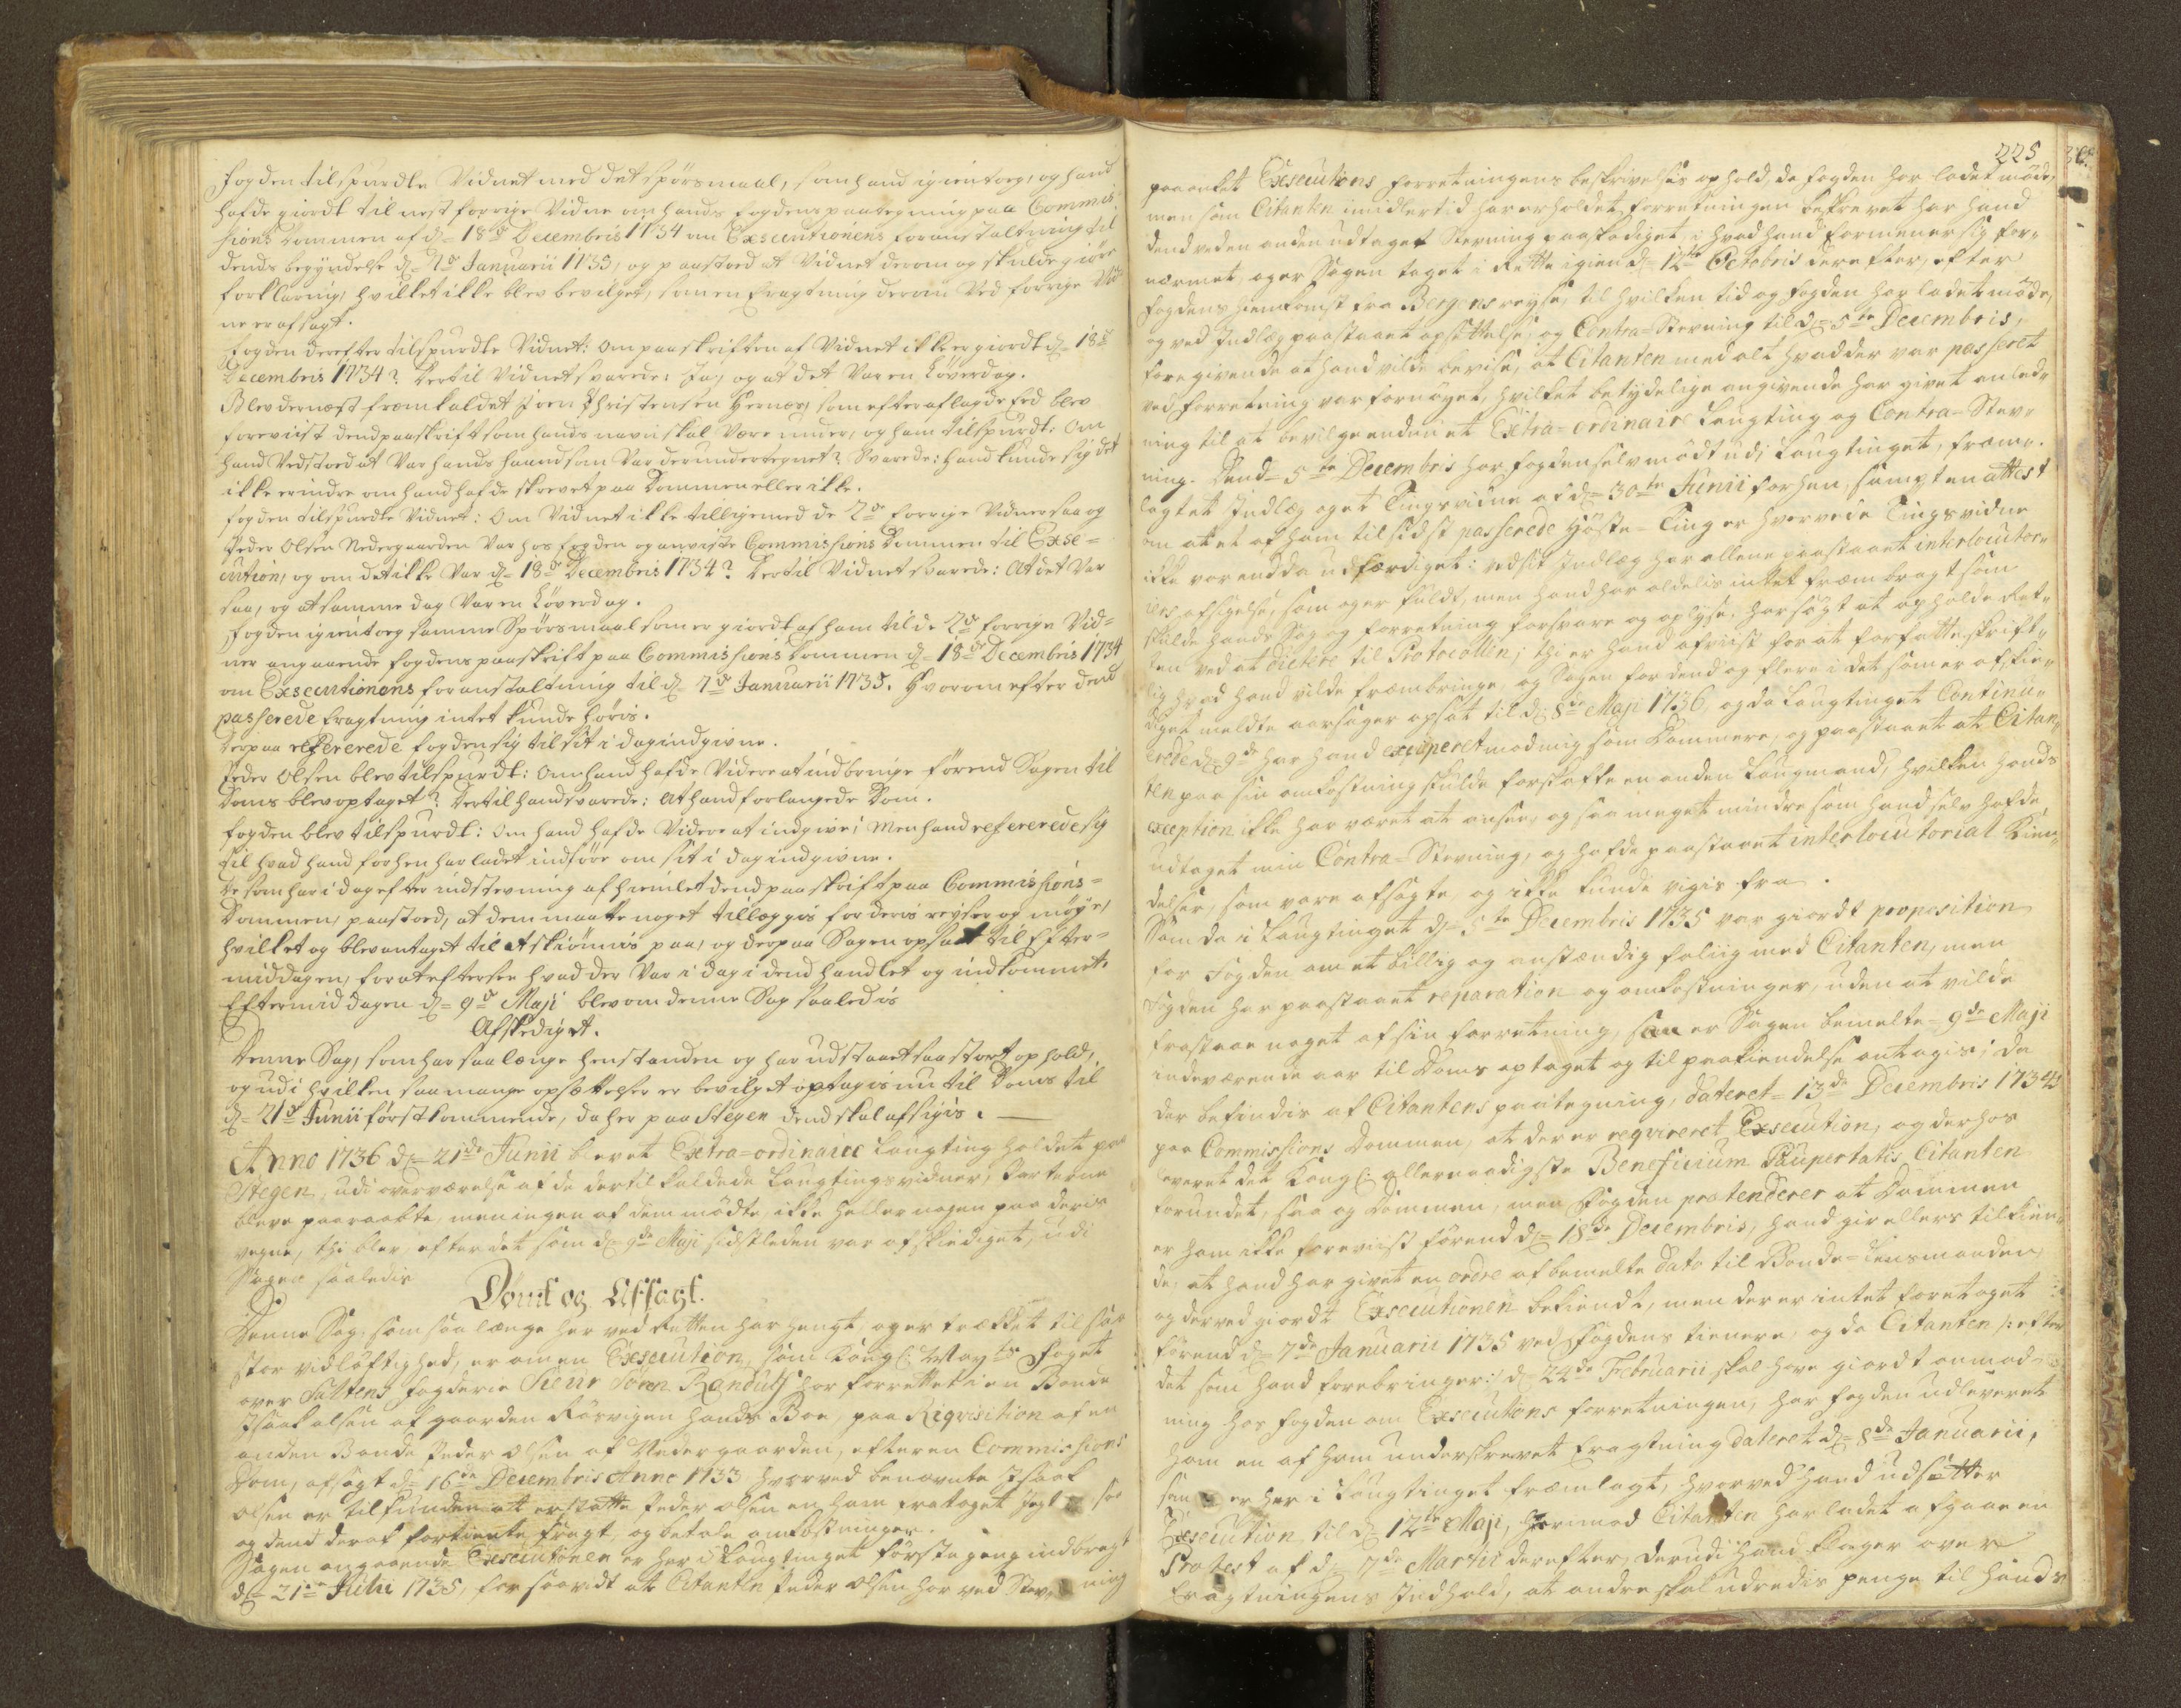 Fogden tilspurdte Vidnet med det spörsmaal, som hand igientog, og hand
hafde giordt til nest forrige Vidne om hands Fogdens paategning paa Commis-
sions Dommen af d= 18de Decembris 1734 om Exsecutionens foranstaltning til
dends begyndelse d= 7de Januarii 1735, og paastoed at Vidnet derom og skulde giöre
forklaring, hvilket ikke blev bevilget, som en Eragtning derom Ved forrige Vid-
ne er afsagt.
Fogden derefter tilspurdte Vidnet: Om paaskriften af Vidnet ikke er giordt d= 18de
Decembris 1734? Dertil Vidnet svarede: Ja, og at det Var en Löverdag.
Blev dernæst fremkaldet Joen Christensen Hernæs, som efter aflagde Eed blev
foreviist dend paaskrift som hands navn skal Være under, og ham tilspurdt: Om
hand Vedstoed at Var hands haand som Var derunder tegnet? Svarede: hand kunde sig det
ikke erindre om hand hafde skrevet paa Dommen eller ikke.
Fogden tilspurdte Vidnet: Om Vidnet ikke tilligemed de 2de forrige Vidner saa og
Peder Olsen Nedergaarden Var hos Fogden og anviste Commissions Dommen til Exse=
cution, og om det ikke Var d= 18de Decembris 1734? Dertil Vidnet svarede: At det Var
saa, og at samme dag Var en Löverdag.
Fogden igientog samme Spörsmaal som er giordt af ham til de 2de forrige Vid=
ner angaaende Fogdens paaskrift paa Commissions Dommen d= 18de Decembris 1734
om Exsecutionens foranstaltning til d= 7de Januarii 1735. Hvorom efter dend
passerede Eragtning intet kunde höris.
Derpaa refererede Fogden sig til sit i dag indgivne.
Peder Olsen blev tilspurdt: Om hand hafde Videre at indbringe förend Sagen til
Doms blev optaget? Dertil hand svarede: At hand forlangede Dom.
Fogden blev tilspurdt: Om hand hafde Videre at indgive; Men hand refererede sig
til hvad hand forhen har ladet indföre om sit i dag indgivne.
De som har i dag efter indstevning afhiemlet dend paaskrift paa Commissions=
Dommen, paastoed, at dem maatte noget tillæggis for deris reyser og möye,
hvilket og blev antaget til at skiönnis paa, og derpaa Sagen opsadt til Efter=
middagen, for at eftersee hvad der Var i dag i dend handlet og indkommet.
Eftermiddagen d= 9de Maji blev om denne Sag saaledis
Afskediget.
Denne Sag, som har saa længe henstanden og har udstaaet saa stort ophold,
og udi hvilken saa mange opsættelser er bevilget optagis nu til Doms til
d= 21de Junii förstkommende, da her paa Stegen dend skal afsigis.
Anno 1736 d= 21de Junii blevet Extra=ordinaire Laugting holdet paa
Stegen, udi overværelse af de dertil kaldede Laugtingsvidner, Parterne
bleve paaraabte, men ingen af dem mödte, ikke heller nogen paa deris
vegne, thi blev, efter det som d= 9de Maji sidstleden var afskediget, udi
Sagen saaledis
Dömt og Afsagt.
Denne Sag, som saa længe her ved Retten har hengt, og er trækket til saa
stor vidlöftighed, er om en Exsecution, som Kongl: May:ts Foget
over Saltens Fogderie Sieur Sören Randulf har forrettet i en Bonde
Isaak olsen af gaarden Rösvigen hands Boe, paa Reqvisition af en
anden Bonde Peder olsen af Nedergaarden, efter en Commissions
Dom, afsagt d= 16de Decembris Anno 1733 hvorved benævnte Isaak
olsen er tilfunden at erstatte Peder olsen en ham frataget Jegt
og dend deraf fortiente fragt, og betale omkostninger.
Sagen angaaende Exsecutionen er her i Laugtinget förste gang indbragt
d= 21de Julii 1735, for saavidt at Citanten Peder olsen har ved Stevning
225
paaanket Exsecutions forretningens beskrivelsis ophold, da Fogden har ladet möde,
men som Citanten imidlertid har erholdet forretningen beskrevet har hand
dend ved en anden udtaget Stevning paaskadiget, i hvad hand formener sig for-
nærmet, og er Sagen taget i Rette igien d= 12te Octobris derefter, efter
Fogdens hiemkomst fra Bergens reyse, til hvilken tid og Fogden har ladet möde,
og ved Indlæg paastaaet opsættelse, og Contra=Stevning til d= 5te Decembris,
foregivende at hand vilde bevise, at Citanten med alt hvad der var passeret
ved forretning var fornöyet, hvilket betydelige angivende har givet anled-
ning til at bevilge endnu et Extra=ordinaire Laugting og Contra=Stev-
ning. Dend 5te Decembris har Fogden selv mödt udi Laugtinget, frem-
lagt et Indlæg og et Tingsvidne af d= 30te Junii forhen, sampt en attest
om at et af ham til sidst passerede Höste=Ting er hvervede Tingsvidne
ikke var endda udfærdiget: ved sit Indlæg har allene paastaaet interlocutor-
iers afsigelse, som og er fuldt, men hand har aldelis intet frembragt som
skulde hands Sag og forretning forsvare og oplyse, har sögt at opholde Ret-
ten ved at dictere til Protocollen, thi er hand afviist for at forfatte skrift-
lig hvad hand vilde frembringe, og Sagen for dend og flere i det som er afskie-
diget meldte aarsager opsat til d= 8de Maji 1736, og da Laugtinget Continu-
erede d= 9de har hand exciperet mod mig som Dommere, og paastaaet at Citan-
ten paa sin omkostning skulde forskaffe en anden Laugmand, hvilken hands
exception ikke har været at ansee, og saa meget mindre som hand selv hafde
udtaget min Contra=Stevning, og hafde paastaaet interlocutorial Kien-
delser, som vare afsagte og ikke kunde vigis fra.
Som da i Laugtinget d= 5te Decembris 1735 var giordt proposition
for Fogden om et billig og anstændig foliig med Citanten, men
Fogden har paastaaet reparation og omkostninger, uden at vilde
frastaae noget af sin forretning, saa er Sagen bemelte 9de Maji
indeværende aar til Doms optaget og til paakiendelse antagis; da
der befindis af Citantens paategning, dateret 13de Decembris 1734
paa Commissions Dommen, at der er reqvireret Exsecution, og derhos
leveret det Kongl: allernaadigste Beneficium Paupertatis Citanten
forundet, saa og Dommen, men Fogden prætenderer at Dommen
er ham ikke foreviist förend d= 18de Decembris, hand gir ellers tilkien-
de, at hand har givet en ordre af bemelte dato til Bonde=Lensmanden,
og derved giordt Exsecutionen bekiendt, men der er intet foretaget
förend d= 7de Januarii 1735 ved Fogdens tienere, og da Citanten /:efter
det som hand forebringer:/ d= 24de Februarii skal have giordt anmod-
ning hos Fogden om Exsecutions forretningen, har Fogden udleveret
ham en af ham underskrevet Eragtning dateret d= 8de Januarii,
som er her i Laugtinget fremlagt, hvorved hand udsætter
Exsecution til d= 12te Maji, hvormod Citanten har ladet afgaae en
Protest af d= 7de Martii derefter, derudi hand klager over
Eragtningens Indhold, at andre skal udredis penge til hands